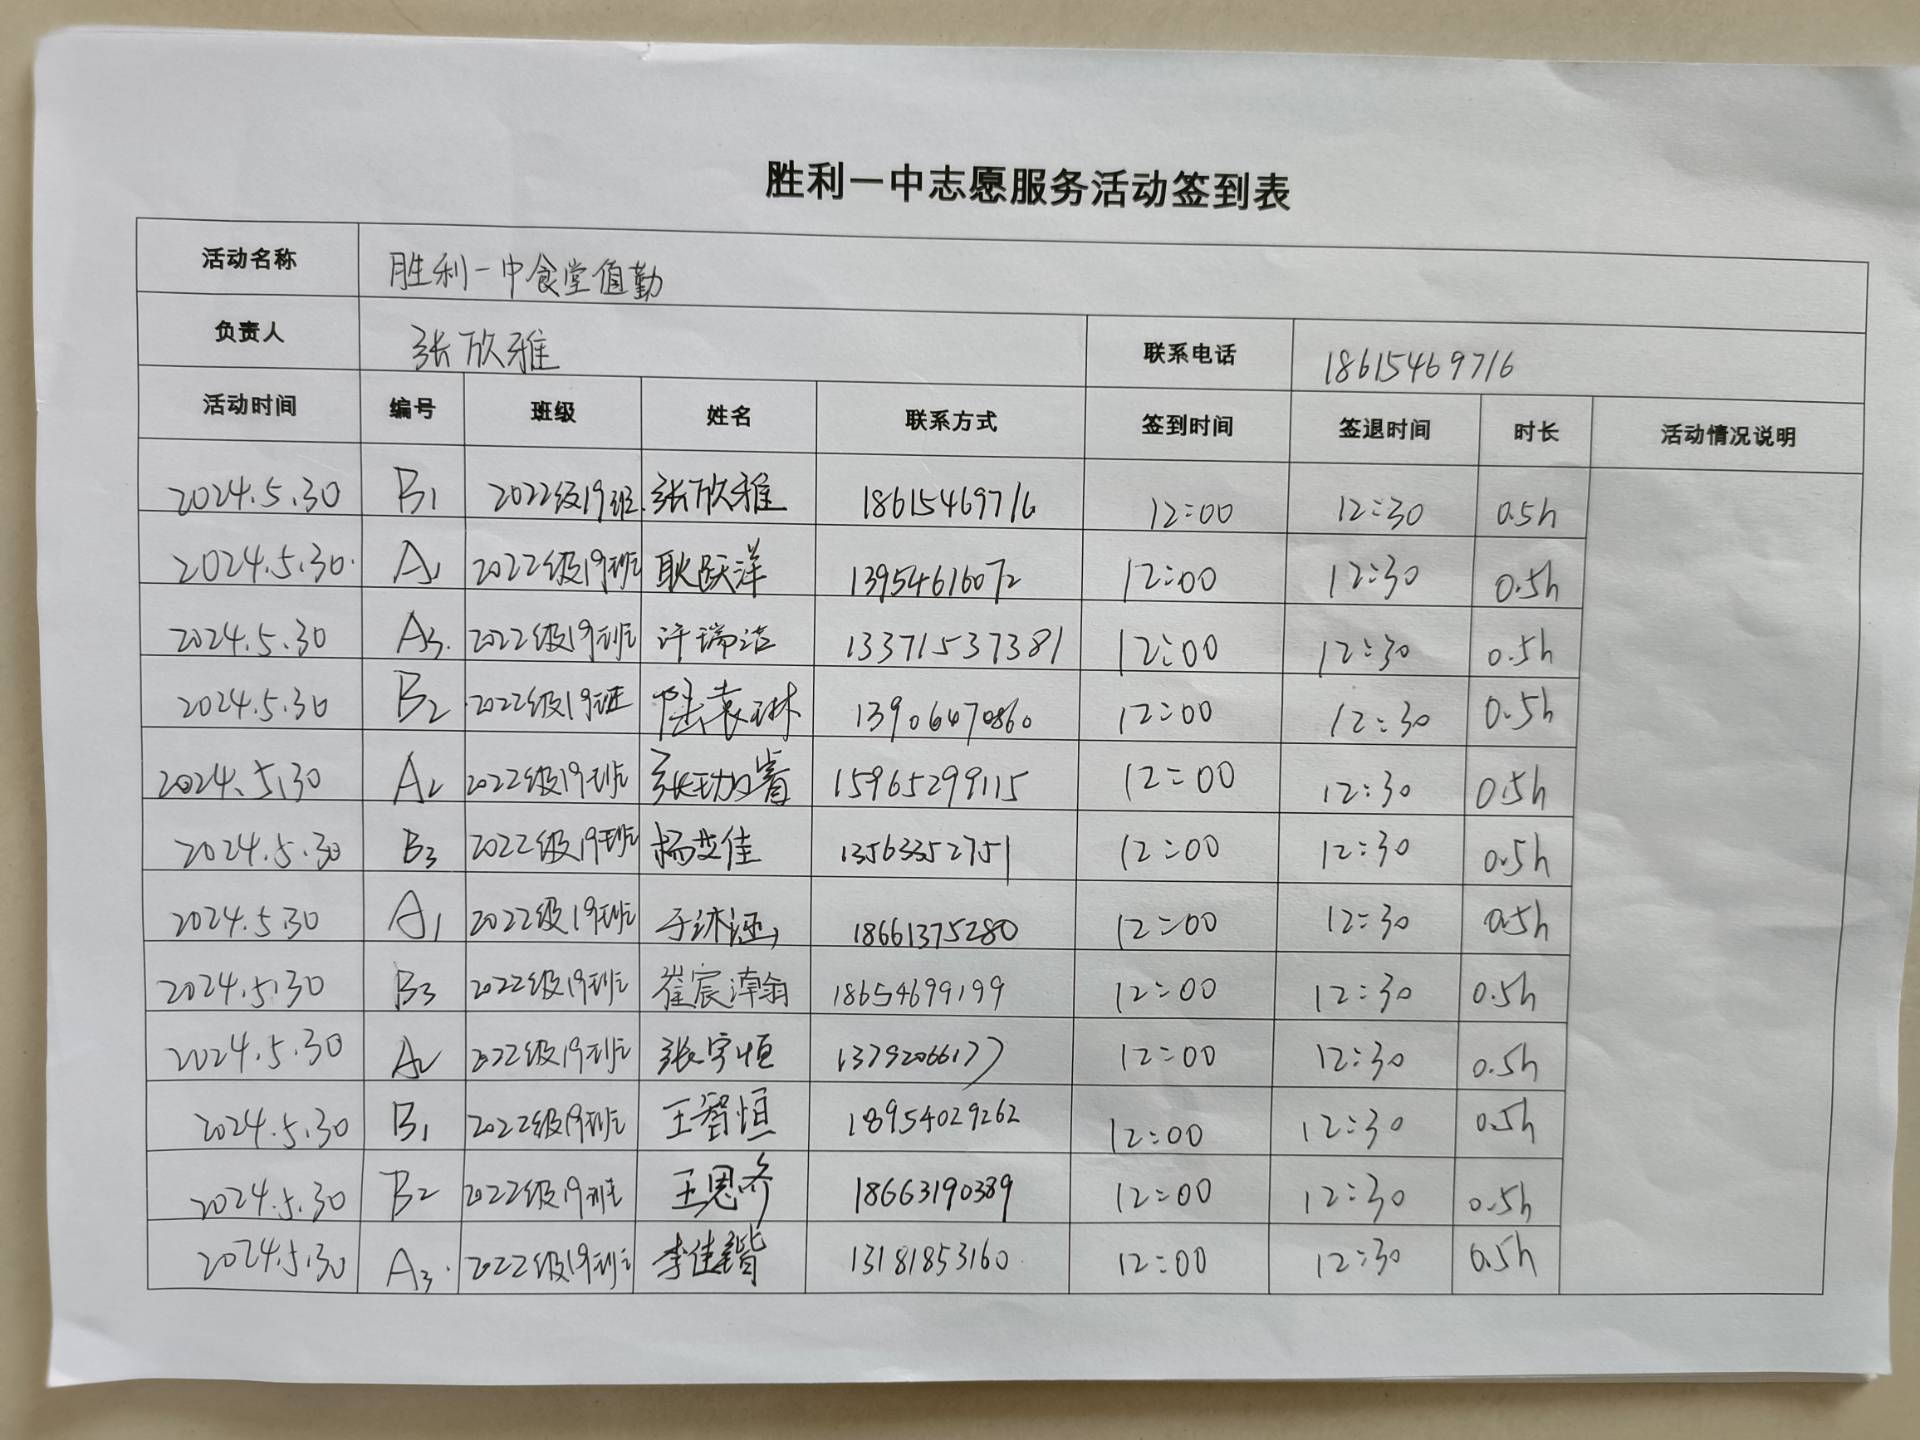 胜利一中志愿服务活动签到表
活动名称 胜利一中食堂值勤
负责人 张欣雅 联系电话 18615469716
活动时间 编号 班级 姓名 联系方式 签到时间 签退时间 时长 活动情况说明
2024.5.30 B1 2022级19班 张欣雅 18615469716 12:00 12:30 0.5h
2024.5.30. A1 2022级19班 耿跃洋 13954616072 12:00 12:30 0.5h
2024.5.30 A3. 2022级19班 许瑞洁 13371537381 12:00 12:30 0.5h
2024.5.30 B2 2022级19班 陆袁琳 13906470860 12:00 12:30 0.5h
2024.5.30 A2 2022级19班 15965299115 12:00 12:30 0.5h
2024.5.30 B3 2022级19班 杨艾佳 13563352751 12:00 12:30 0.5h
2024.5.30 A1 2022级19班 于沐涵 18661375280 12:00 12:30 0.5h
2024.5.30 B3 2022级19班 崔宸漳翰 18654699199 12:00 12:30 0.5h
2024.5.30 A2 2022级19班 张宇恒 13792066177 12:00 12:30 0.5h
2024.5.30 B1 2022级19班 王智恒 18954029262 12:00 12:30 0.5h
2024.5.30 B2 2022级19班 王思齐 18663190389 12:00 12:30 0.5h
2024.5.30 A3. 2022级19班 李佳锴 13181853160 12:00 12:30 0.5h